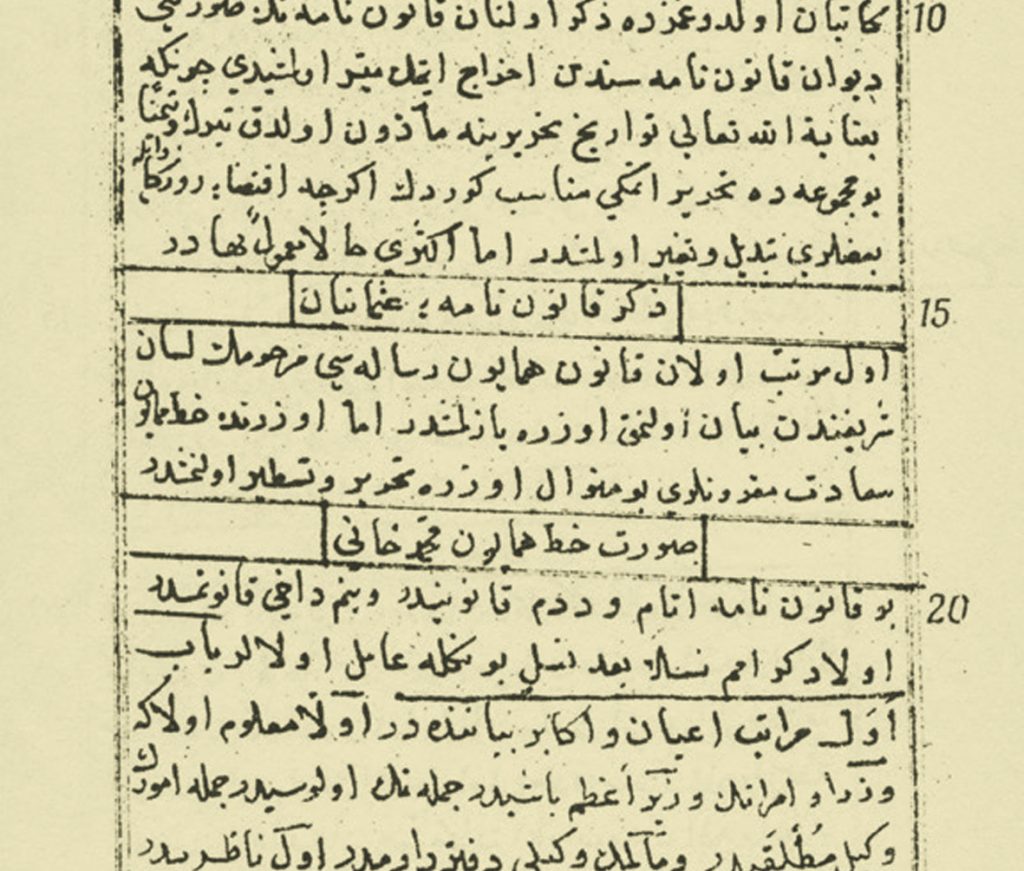 كاتبان اولدوغمزده ذكر اولنان قانون نامه نك صورتنى 10
ديوان قانون نامه سندن اخراج ايتمك ميسر اولمشيدي چونكه
بعناية الله تعالي تواريخ تحريرينه مأذون اولدق تبركا وتيمنا
بو مجموعه ده تحرير اتمكي مناسب كوردك اكرچه اقتضاء روزكار ايله
بعضلري تبديل وتغير اولمشدر اما اكثري حالا معمولٌ بها در
ذكر قانون نامهء عثمانيان 15
اول مرتب اولان قانون همايون رساله سي مرحومك لسان
شريفندن بيان اولنمق اوزره يازلمشدر اما اوزرنده خط همايون
سعادت مقرونلري بو منوال اوزره تحرير وتسطير اولنمشدر
صورت خط همايون محمد خاني
بو قانون نامه اتام و ددم قانونيدر وبنم داخي قانونمدر 20
اولاد كرامم نسلا بعد نسلٍ بونكله عامل اولالر باب
اَوّل مراتب اعيان واكابر بياننده در اولا معلوم اولا كه
وزرا و امرانك وزير أعظم باشيدر جمله نك اولوسيدر جمله امورك
وكيل مُطلقيدر ومالمك وكيلي دفتردارمدر اول ناظريدر